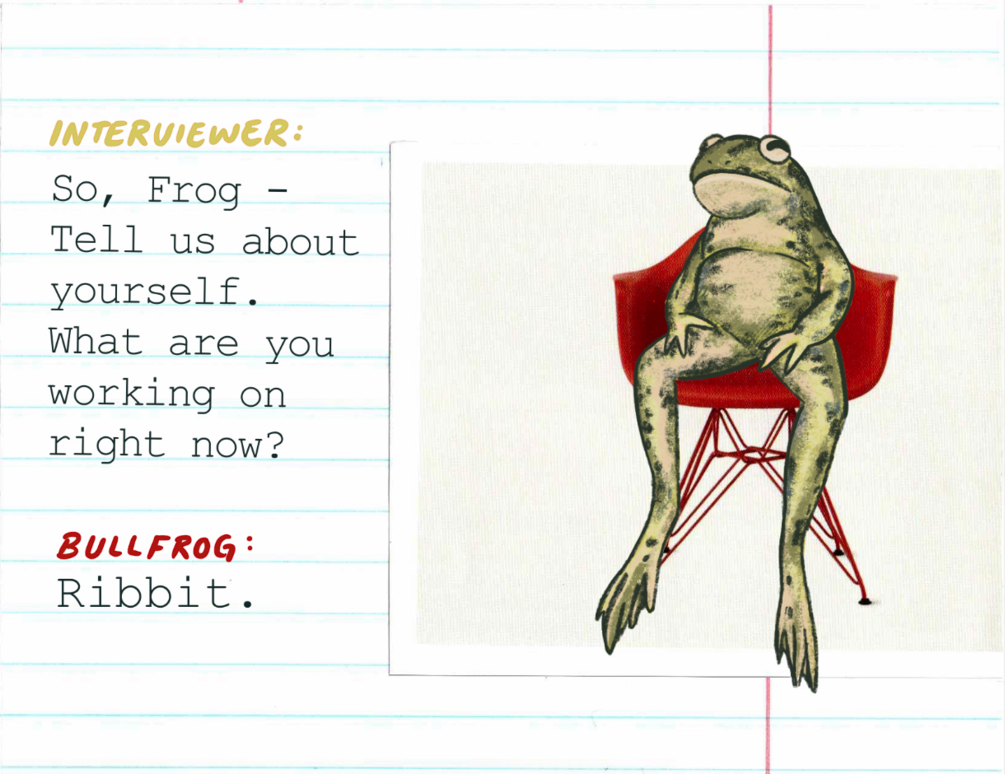 INTERVIEWER:
So, Frog –
Tell us about
yourself.
What are you
working on
right now?
BULLFROG:
Ribbit.